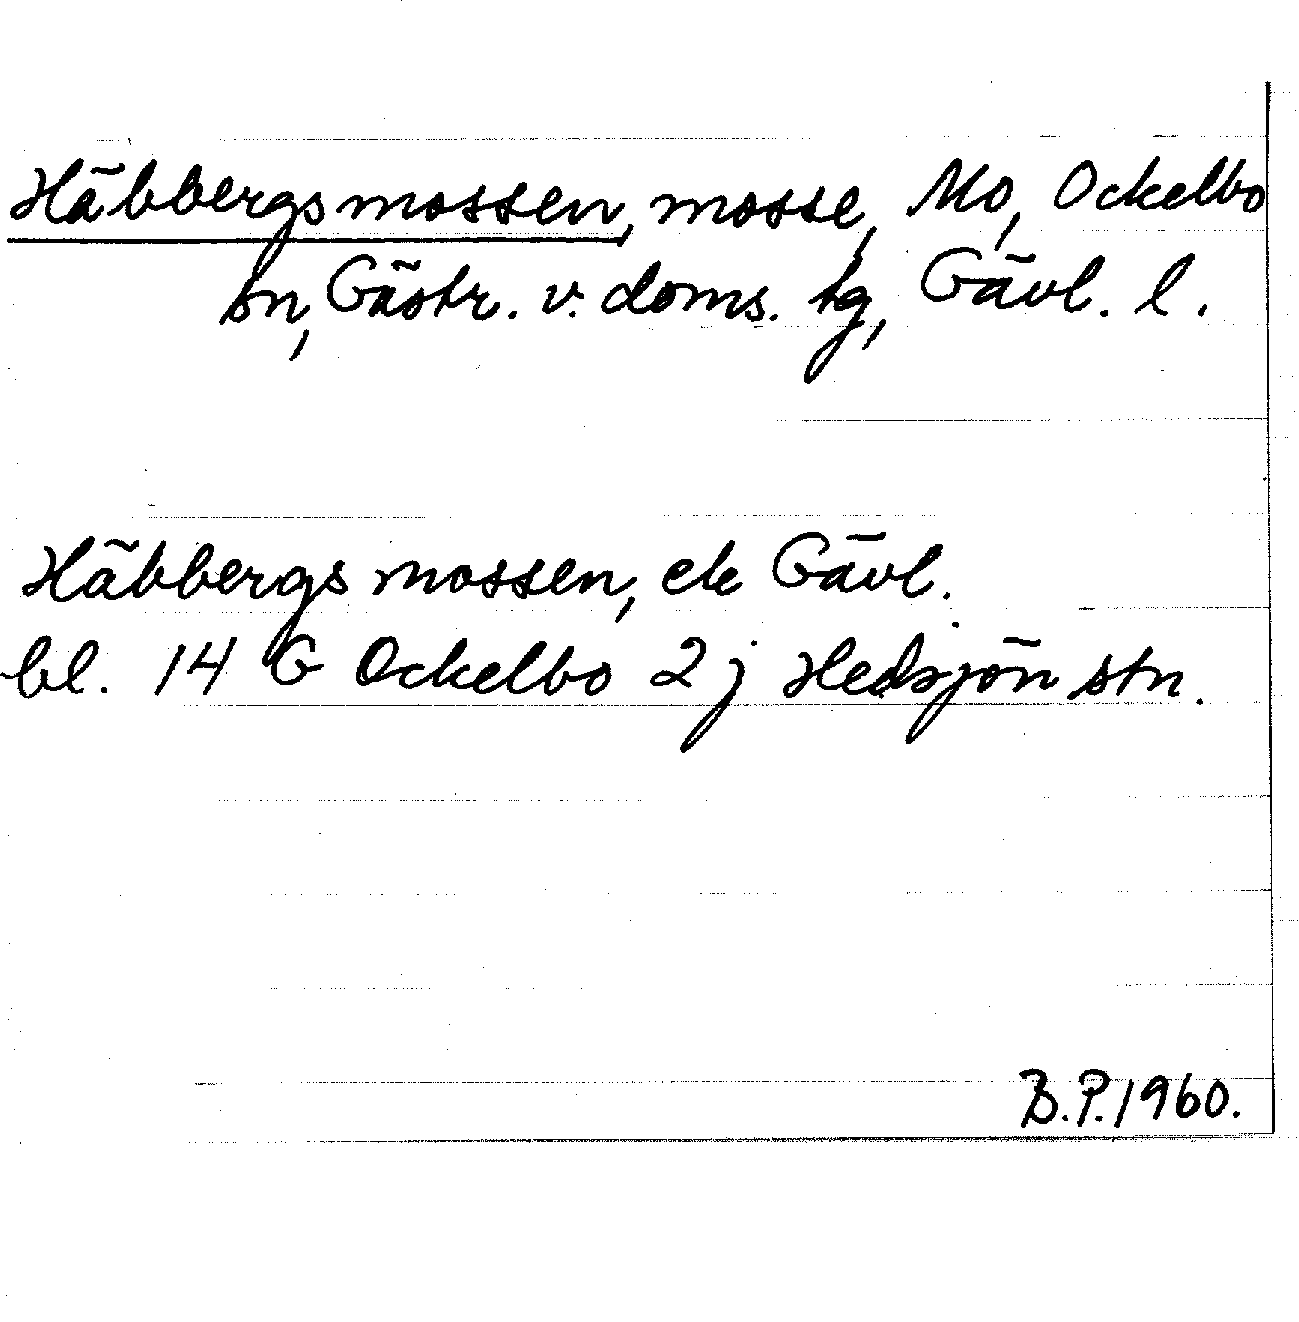 Häbbergsmossen, mosse, Mo, Ockelbo
sn, Gästr. v. doms. tg, Gävl. l.
Häbbergsmossen, ek Gävl.
bl. 14 G Ockelbo 2 j Hedsjön stn.
B.P. 1960.